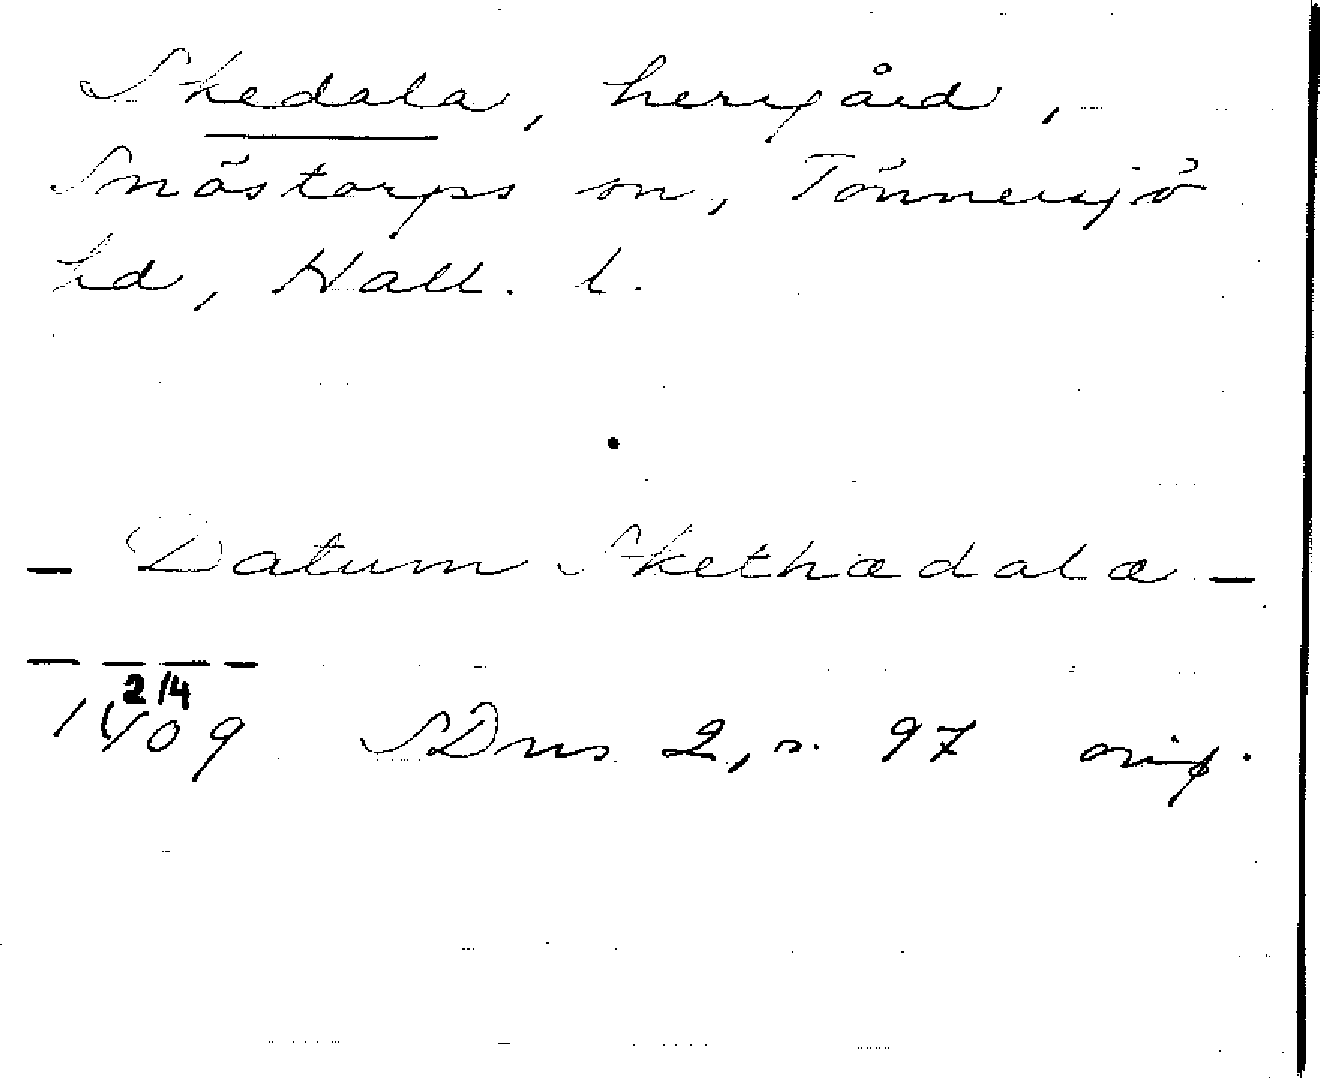 Skedala, herrgård,
Snöstorps sn, Tönnersjö
hd, Hall. l.
– Datum Skethædalæ –
– – – –
2/4
1409 SDns 2, s. 97 orig.